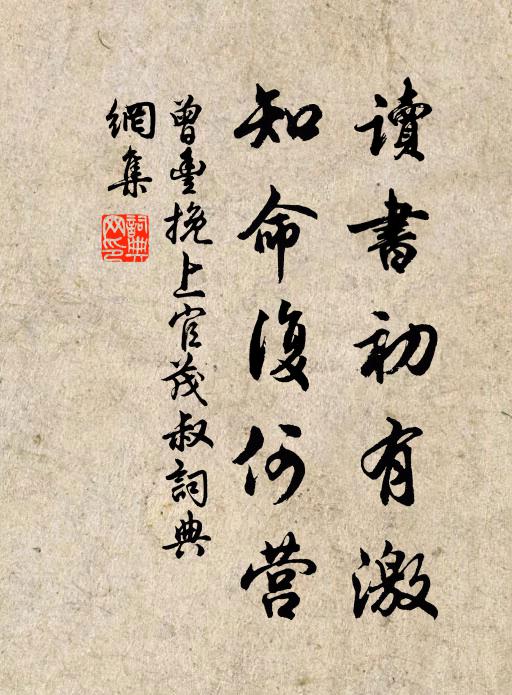 讀書初有激
知命復何营
曾豊挽上官茂叔詞典
網集
詞典网印